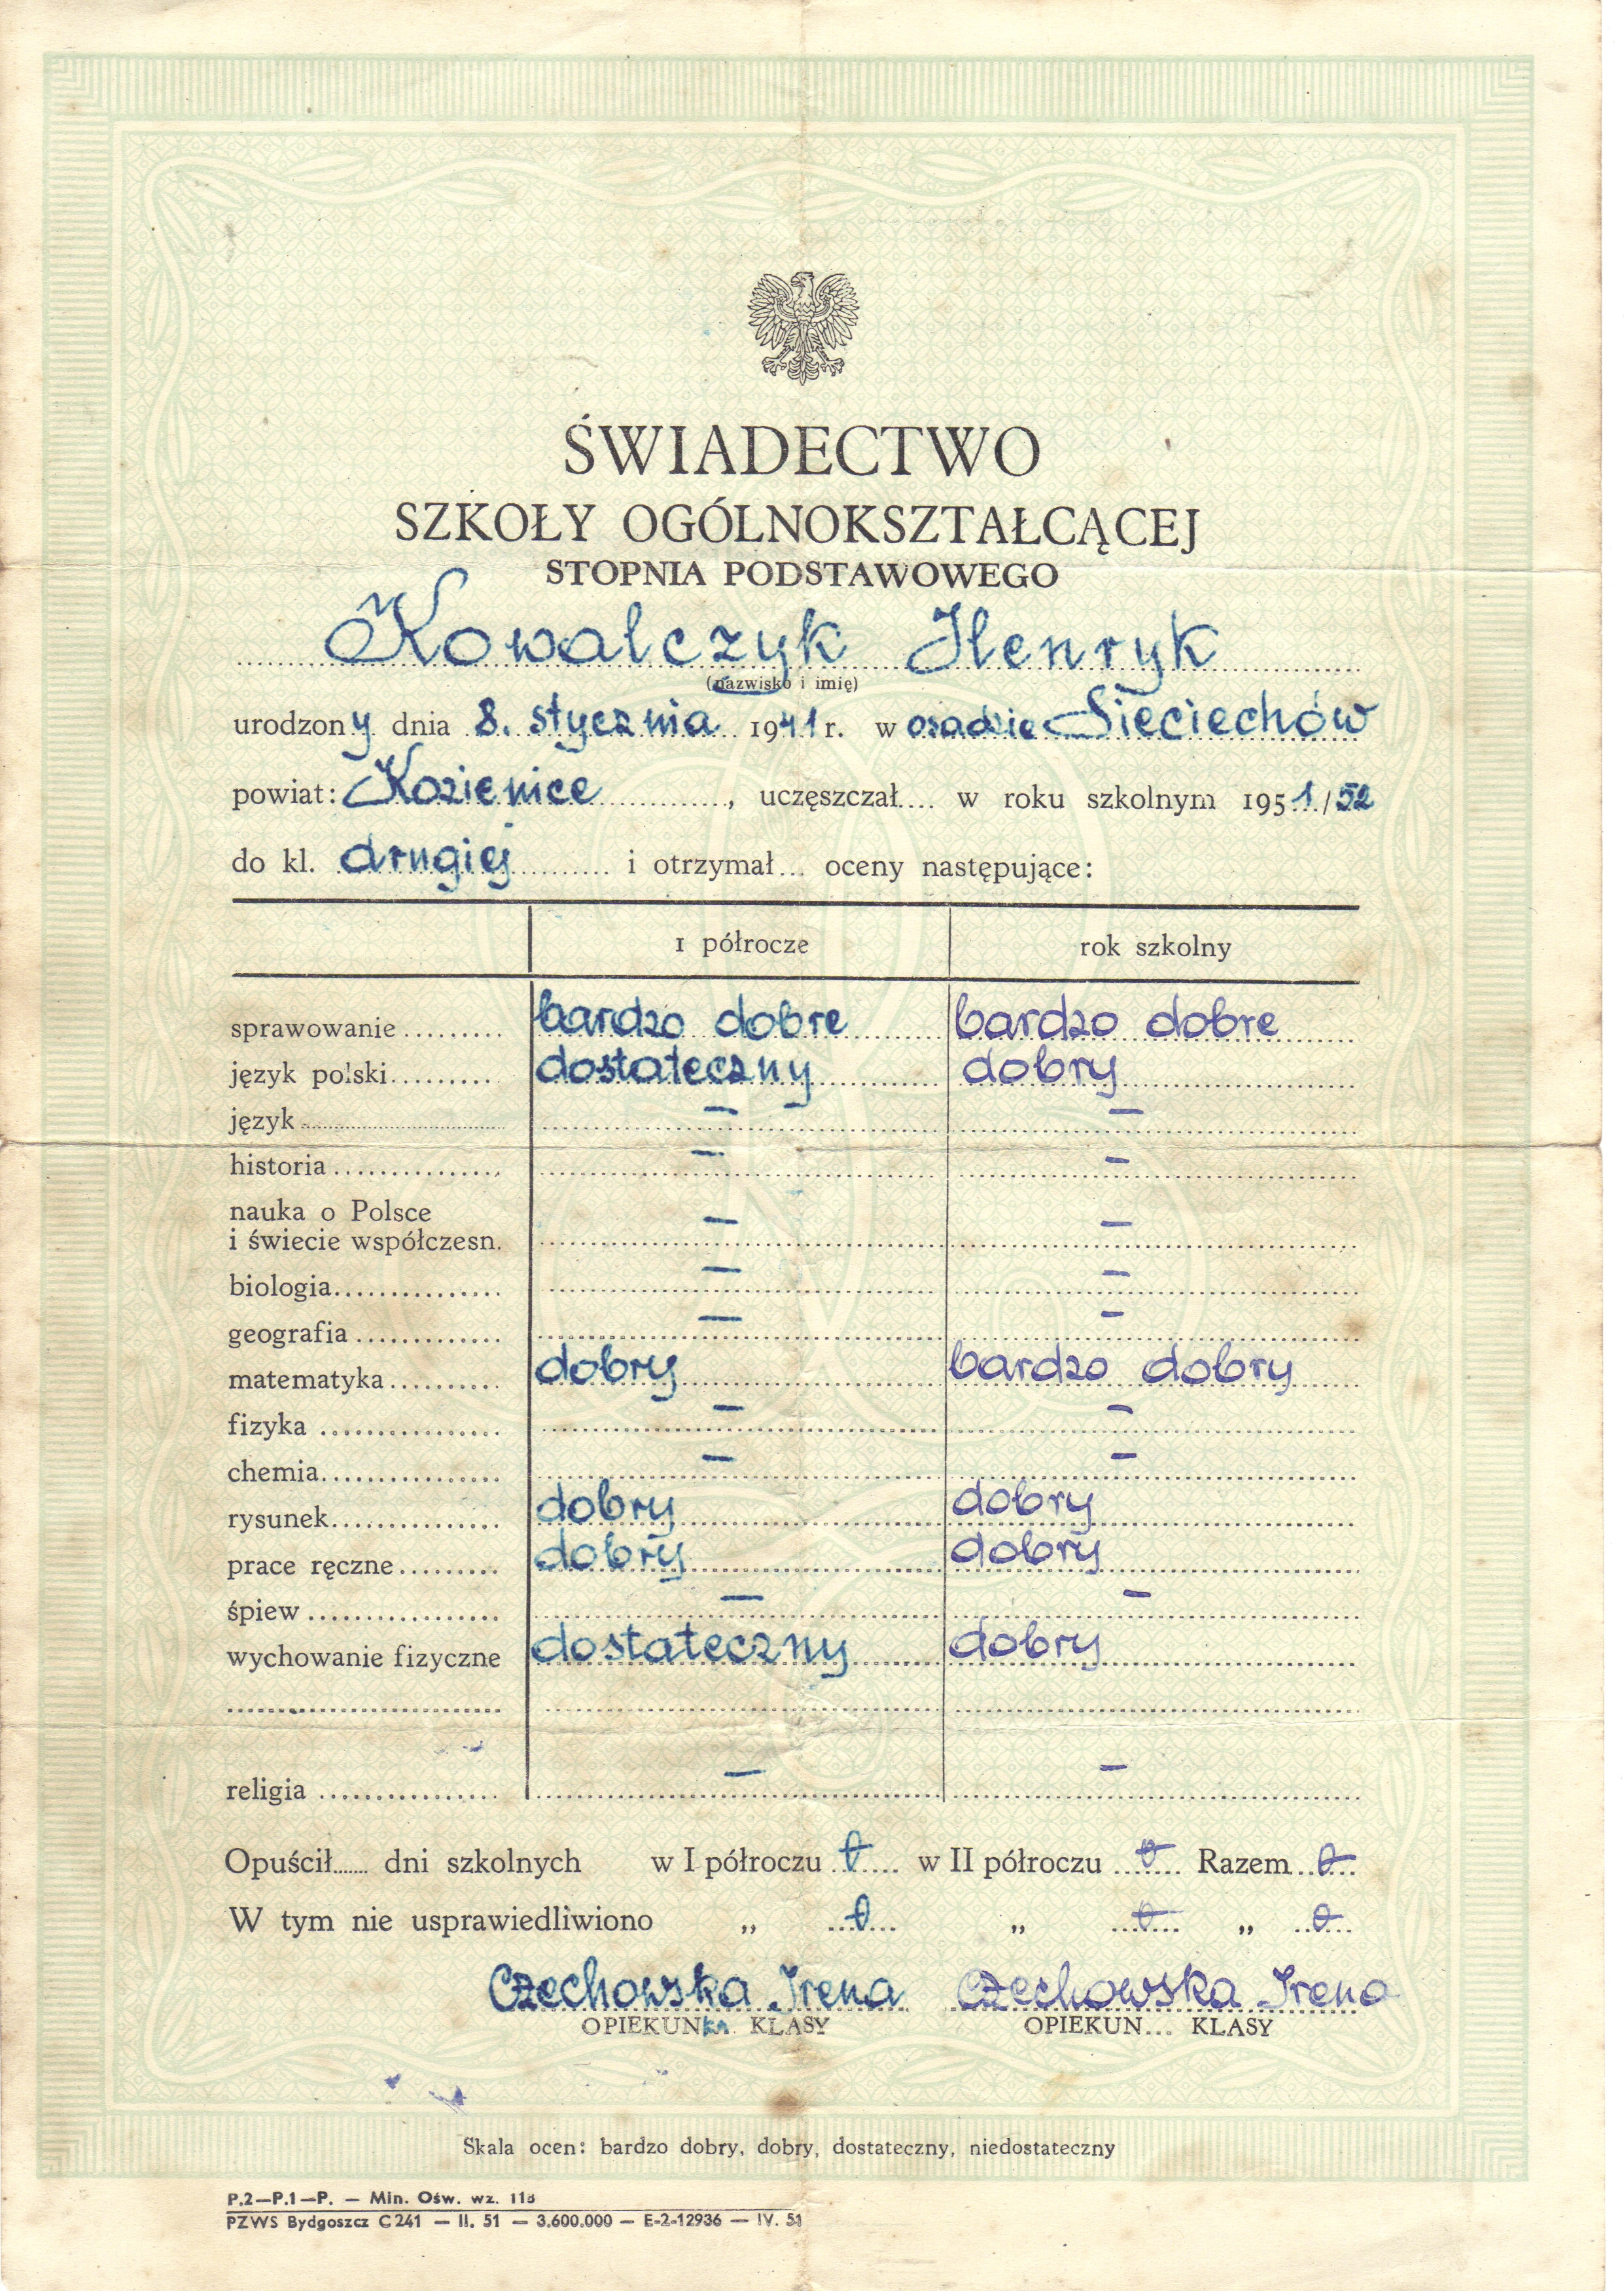 ŚWIADECTWO
SZKOŁY OGÓLNOKSZTAŁCĄCEJ
STOPNIA PODSTAWOWEGO
Kowalczyk Henryk
(nazwisko i imię)
urodzony dnia 8. stycznia 1941 r. w osadzie Sieciechów
powiat: Kozienice, uczęszczał.... w roku szkolnym 1951/52
do kl. drugiej i otrzymał... oceny następujące:
I półrocze rok szkolny
sprawowanie bardzo dobre bardzo dobre
język polski dostateczny dobry
język — —
historia — —
nauka o Polsce
i świecie współczesn. — —
biologia — —
geografia — —
matematyka dobry bardzo dobry
fizyka — —
chemia — —
rysunek dobry dobry
prace ręczne dobry dobry
śpiew — —
wychowanie fizyczne dostateczny dobry
religia — —
Opuścił...... dni szkolnych w I półroczu 0 w II półroczu 0 Razem 0
W tym nie usprawiedliwiono „ 0 „ 0 „ 0
Czechowska Irena Czechowska Irena
OPIEKUNka KLASY OPIEKUN... KLASY
Skala ocen: bardzo dobry, dobry, dostateczny, niedostateczny
P.2—P.1—P. — Min. Ośw. wz.
PZWS Bydgoszcz C 241 — II. 51 — 3.600.000 — E-2-12936 — IV. 51